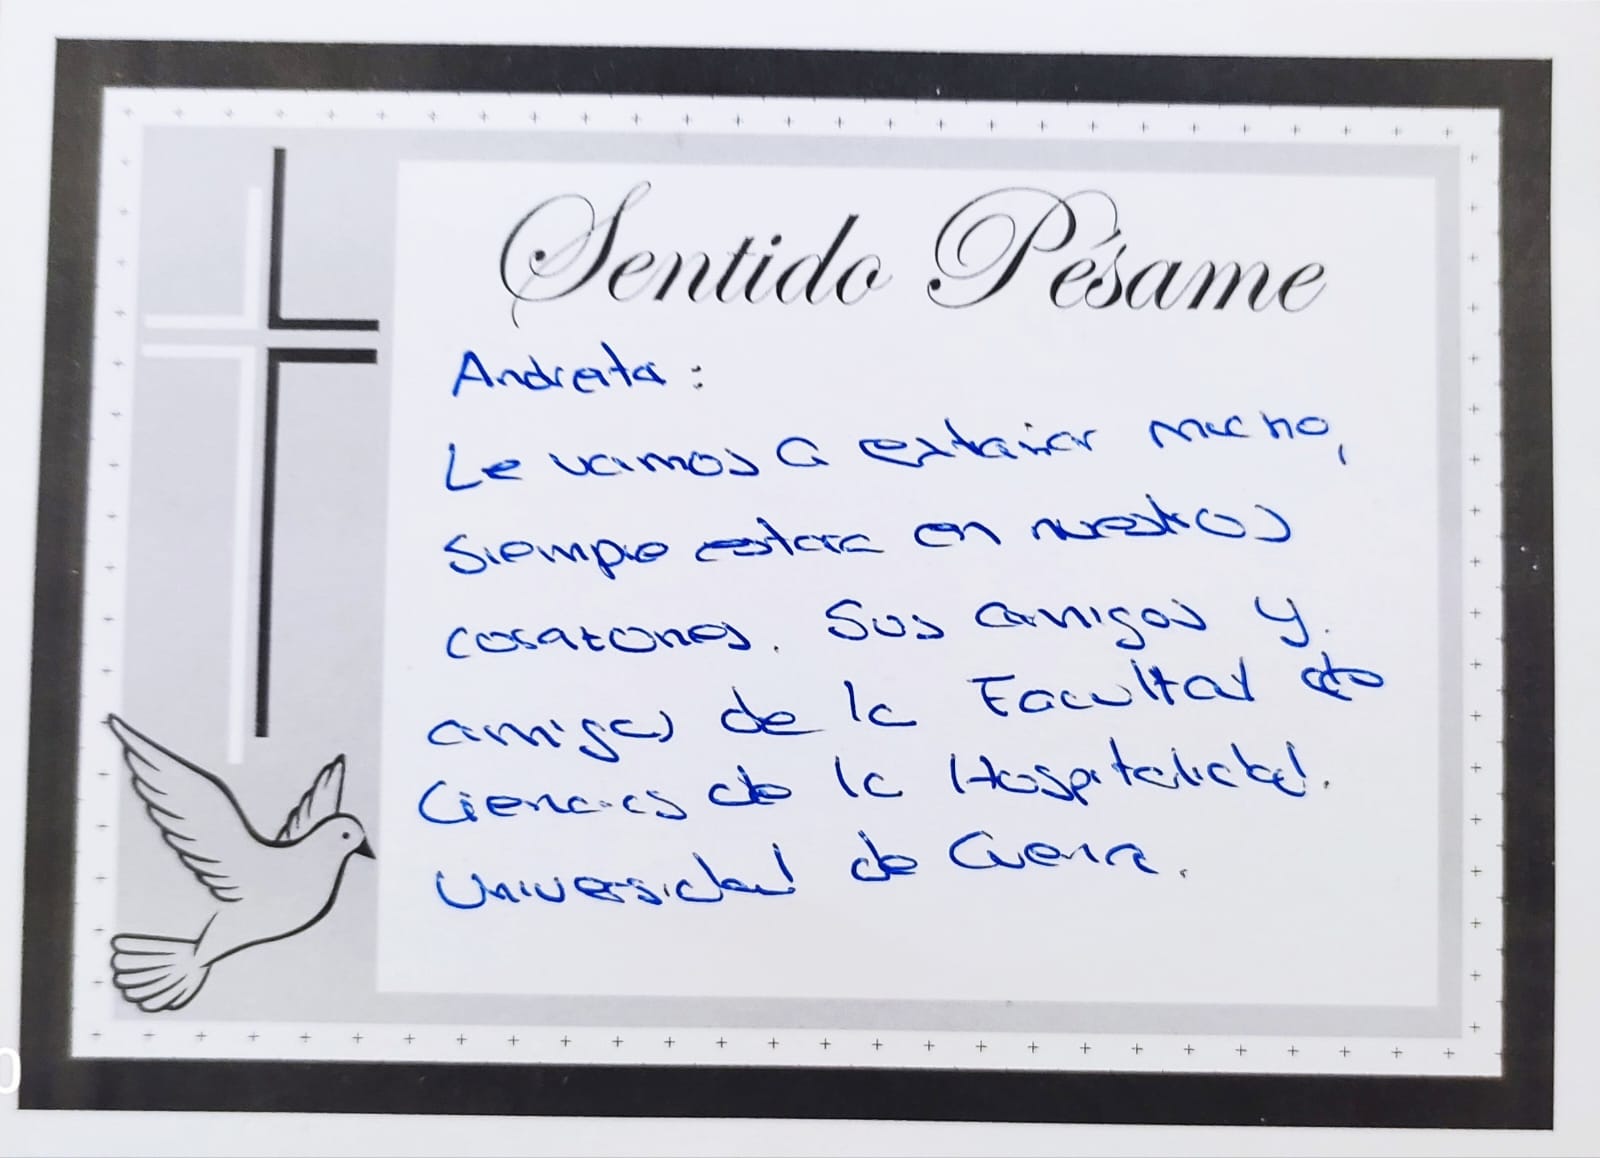 Sentido Pésame
Andreita:
Le vamos a extrañar mucho,
siempre estara en nuestros
corazones. Sus amigos y
amigas de la Facultad de
Ciencias de la Hospitalidad.
Universidad de Cuenca.